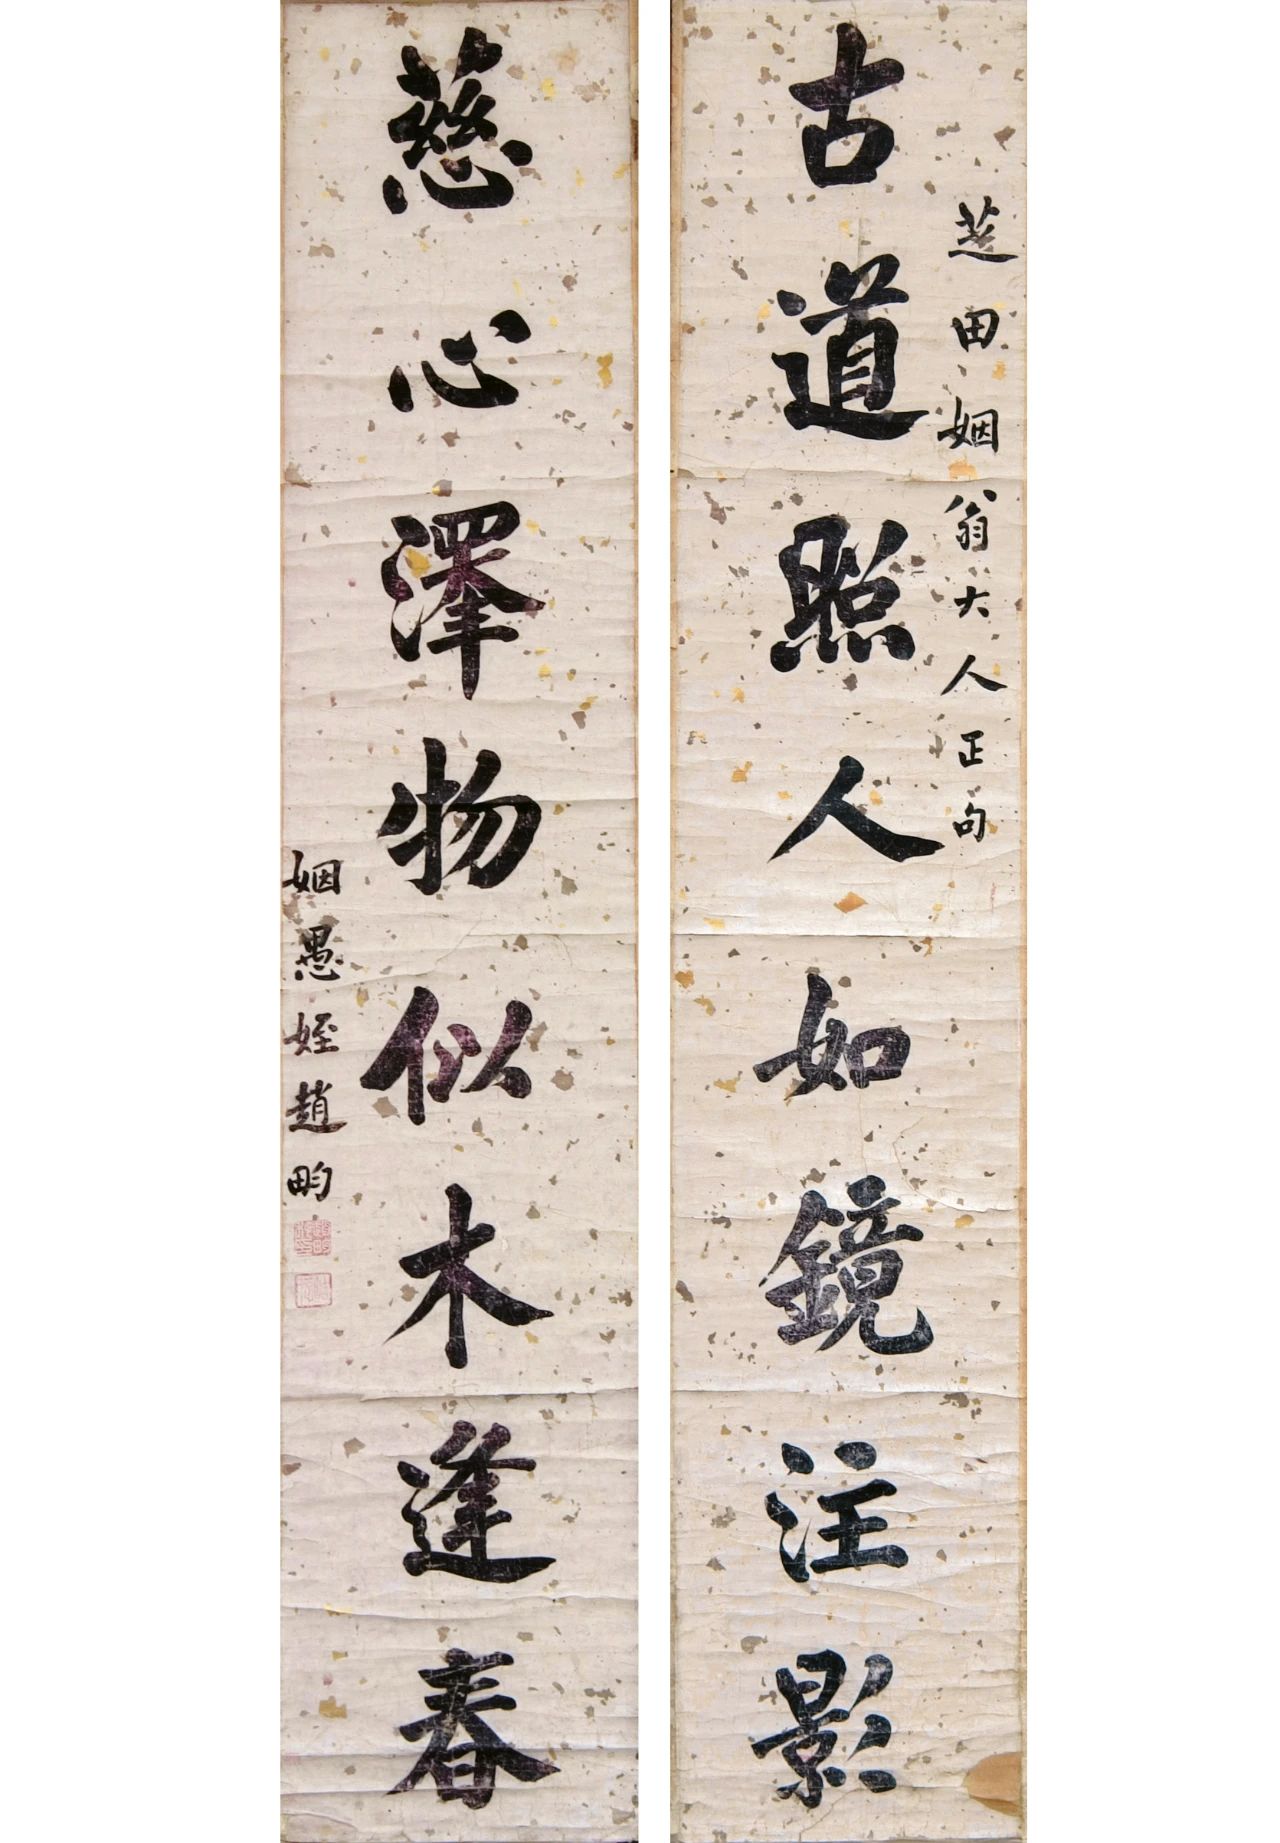 芝田姻翁大人正句
古道照人如鏡注影
慈心澤物似木逢春
姻愚姪趙畇